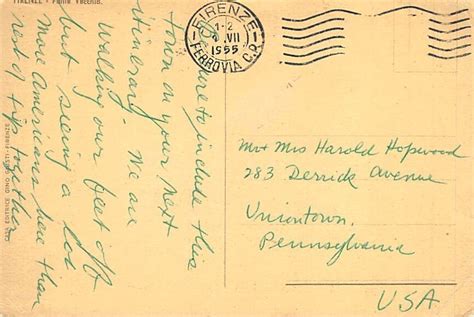 FIRENZE - Ponte Vecchio
FIRENZE
1-2
VII
1955
FERROVIA C.P.
sure to include this
town on your next
itinerary. We are
walking our feet off
but seeing a lot
More Americans here than
rest of trip together
Mr + Mrs Harold Hopwood
283 Derrick Avenue
Uniontown,
Pennsylvania
USA
CASA EDITRICE